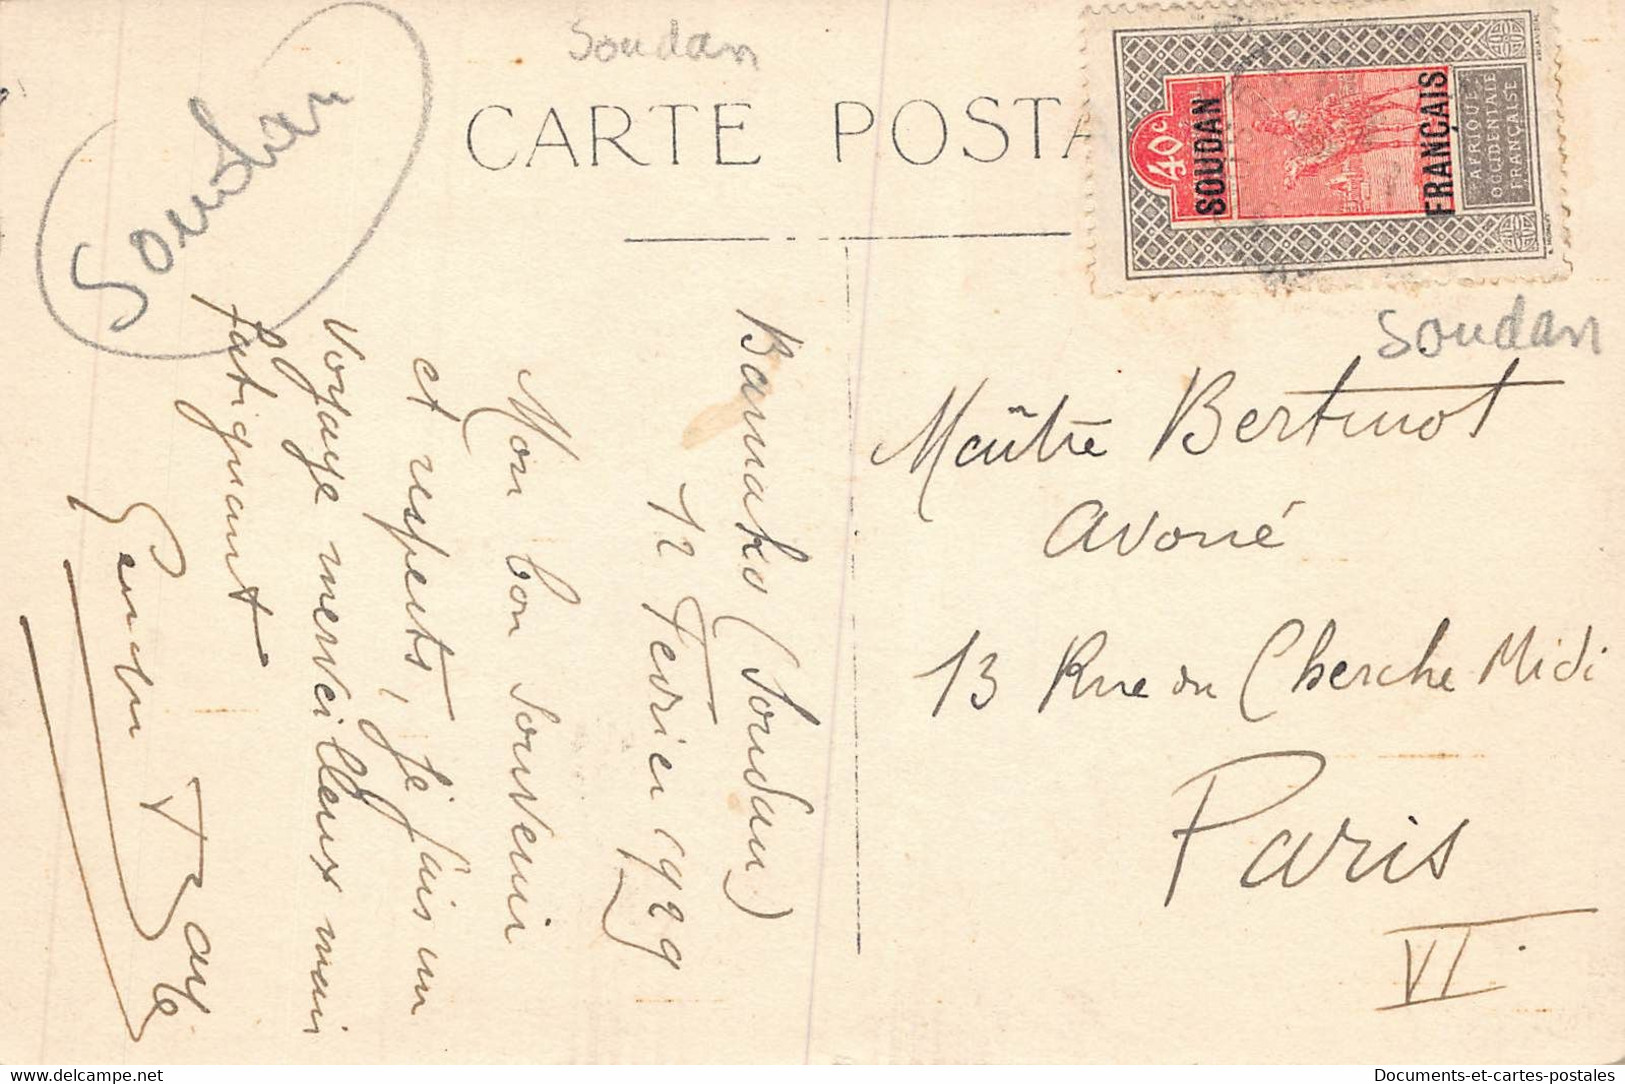 Soudan
Soudan
CARTE POSTA
40c
SOUDAN
FRANÇAIS
AFRIQUE
OCCIDENTALE
FRANÇAISE
Soudan
Bamako (Soudan)
12 Fevrier 1929
Mon bon souvenir
et respects, je fais un
voyage merveilleux mais
fatiguant
Maître Bertinot
avoué
13 Rue du Cherche Midi
Paris
VI.
Documents-et-cartes-postales